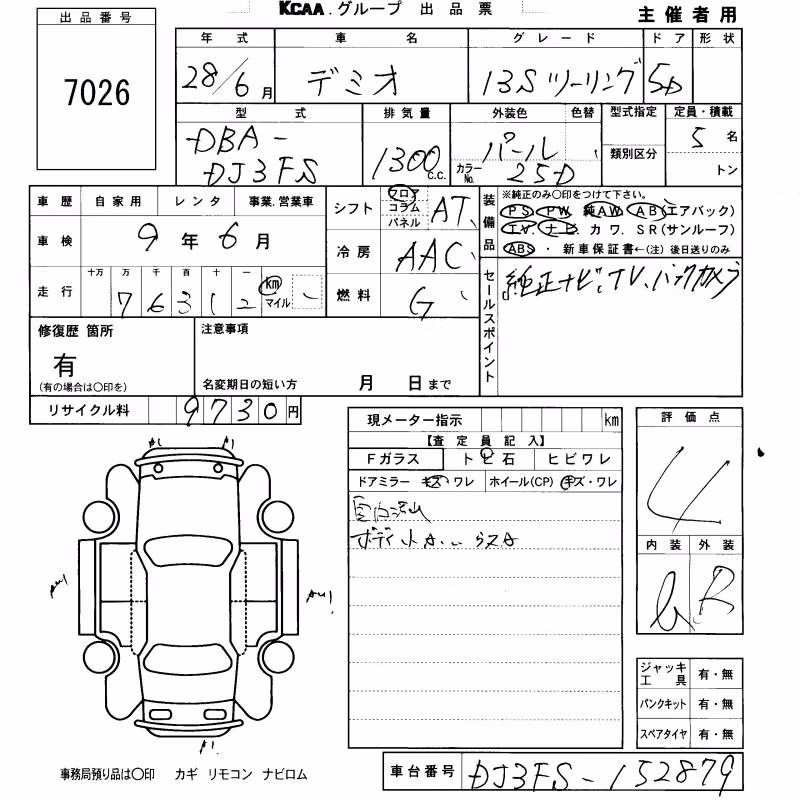 KCAA.グループ 出品票
主催者用
出品番号
7026
年式 車名 グレード ドア 形状
28/6月 デミオ 13Sツーリング 5D
型式 排気量 外装色 色替 型式指定 定員・積載
DBA-
DJ3FS
1300 c.c.
パール
カラーNo. 25D
類別区分
5名
トン
車歴 自家用 レンタ 事業.営業車
車検 9年6月
走行 十万 万 千 百 十 一
7 6 3 1 2 km
マイル
シフト フロア コラム パネル AT
冷房 AAC
燃料 G
装備品
※純正のみ〇印をつけて下さい。
PS PW 純AW AB(エアバック)
TV. ナビ カワ. SR(サンルーフ)
ABS ・ 新車保証書←(注) 後日送りのみ
セールスポイント
純正ナビ、TV、バックカメラ
修復歴 箇所
有
(有の場合は〇印を)
注意事項
名変期日の短い方 月 日まで
リサイクル料 9730円
現メーター指示 km
【査定員記入】
Fガラス トビ石 ヒビワレ
ドアミラー キズ・ワレ ホイール(CP) キズ・ワレ
ボディ小A
評価点
4
内装 外装
B
ジャッキ工具 有・無
パンクキット 有・無
スペアタイヤ 有・無
A1 A1
AU1 AU1
A1
事務局預り品は〇印 カギ リモコン ナビロム
車台番号 DJ3FS-152879